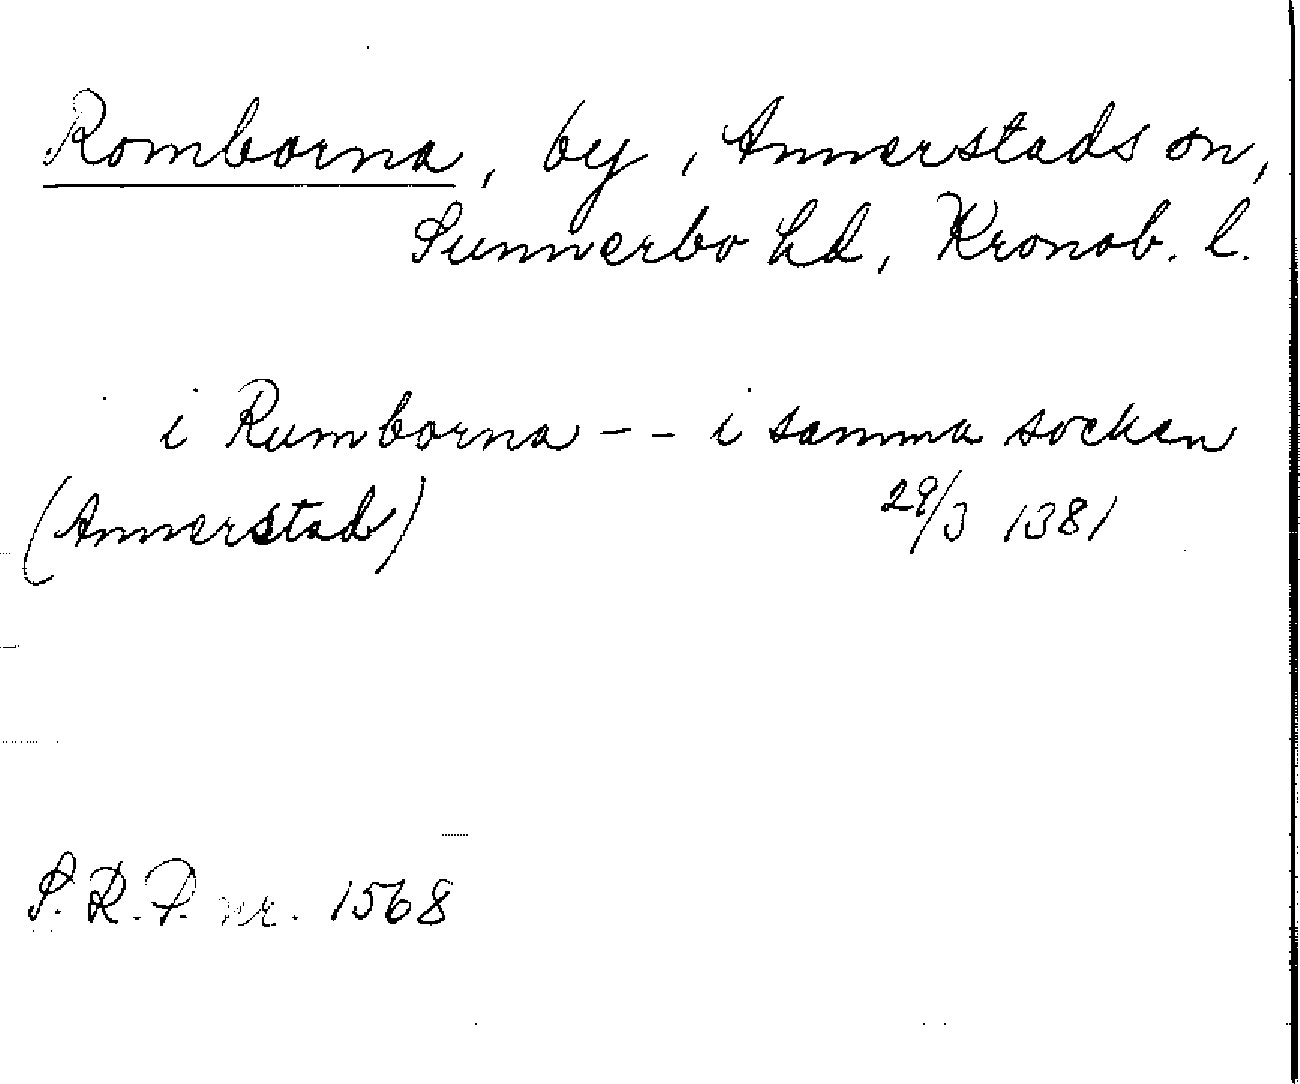 Romborna, by, Annerstads sn,
Sunnerbo hd, Kronob. l.
i Rumborna -- i samma socken
(Annerstad) 29/3 1381
S.R.P. nr. 1568